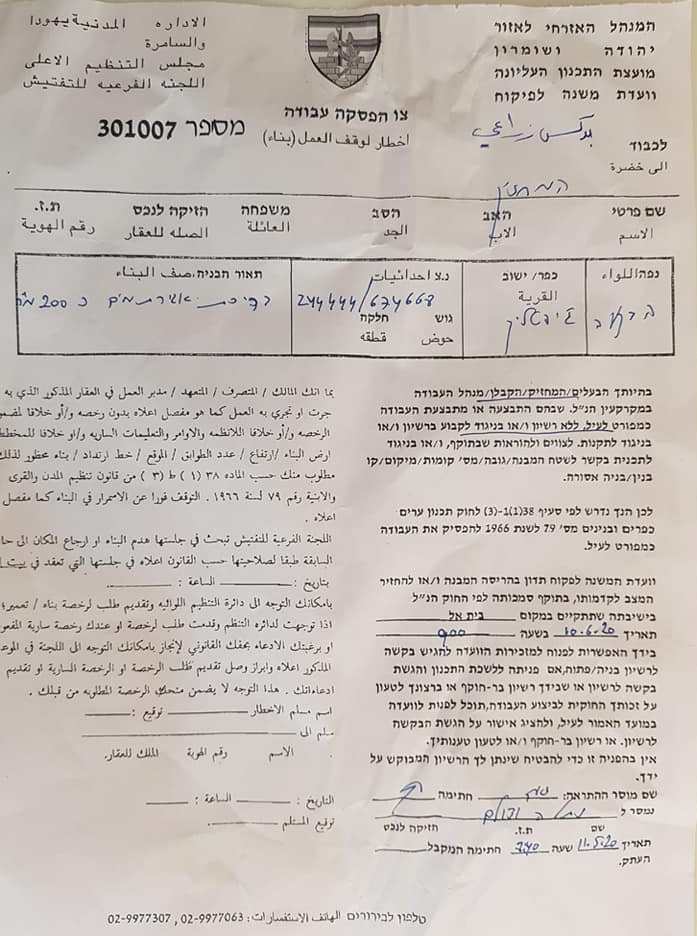 המנהל האזרחי לאזור
יהודה ושומרון
מועצת התכנון העליונה
וועדת משנה לפיקוח
الاداره المدنية يهودا
والسامرة
مجلس التنظيم الاعلى
اللجنه الفرعيه للتفتيش
צו הפסקה עבודה
اخطار لوقف العمل (بناء)
מספר 301007
לכבוד
الى حضرة
بركس زراعي
שם פרטי האב הסב משפחה הזיקה לנכס ת.ז.
الاسم الاب الجد العائلة الصله للعقار رقم الهوية
נפה/אללואء כפר/ ישוב נ.צ احداثيات תאור הבניה, صف البناء
القرية
274444/674668
200
גוש חלקה
حوض قطعه
בהיותך הבעלים/המחזיק/הקבלן/מנהל העבודה
במקרקעין הנ"ל. שבהם התבצעה או מתבצעת העבודה
כמפורט לעיל, ללא רשיון ו/או בניגוד לקבוע ברשיון ו/או
בניגוד לתקנות. לצווים ולהוראות שבתוקף, ו/או בניגוד
לתכנית בקשר לשטח המבנה/גובה/מס' קומות/מיקום/קו
בנין/בניה אסורה.
לכן הנך נדרש לפי סעיף 38(1)(1-3) לחוק תכנון ערים
כפרים ובנינים מס' 79 לשנת 1966 להפסיק את העבודה
כמפורט לעיל.
וועדת המשנה לפקוח תדון בהריסה המבנה ו/או להחזיר
המצב לקדמותו, בתוקף סמכותה לפי החוק הנ"ל
בישיבתה שתתקיים במקום בית אל
תאריך 10.6.20 בשעה 900
בידך האפשרות לפנות למזכירות הוועדה להגיש בקשה
לרשיון בניה/פתוח, אם פניתה ללשכת התכנון והגשת
בקשה לרשיון או שבידך רשיון בר-תוקף או ברצונך לטעון
על זכותך החוקית לביצוע העבודה, תוכל לפנית לוועדה
במועד האמור לעיל, ולהציג אישור על הגשת הבקשה
לרשיון. או רשיון בר-תוקף ו/או לטעון טענותיך.
אין בהפניה זו כדי להבטיח שינתן לך הרשיון המבוקש על
ידך.
שם מוסר ההתראה: חתימה
נמסר ל
שם ת.ז. הזיקה לנכס
תאריך 11.5.20 שעה 740 חתימה המקבל
העתק.
بما انك المالك / المتصرف / المتعهد / مدير العمل في العقار المذكور الذي به
جرت او تجري به العمل كما هو مفصل اعلاه بدون رخصه و/أو خلافا لمضمو
الرخصه و/أو خلافا للانظمه والاوامر والتعليمات الساريه و/او خلافا للمخطط
ارض البناء /ارتفاع / عدد الطوابق / الموقع / خط ارتداد / بناء محظور لذلك
مطلوب منك حسب الماده ٣٨ (١) ط (٣) من قانون تنظيم المدن والقرى
والابنية رقم ٧٩ لسنة ١٩٦٦ . التوقف فورا عن الاسمرار في البناء كما مفصل
اعلاه .
اللجنة الفرعية للتفتيش تبحث في جلستها هدم البناء او ارجاع المكان الى حا
السابقة طبقا لصلاحيتها حسب القانون اعلاه في جلستها التي تعقد في بيت ا
بتاريخ : الساعة :
بامكانك التوجه الى دائرة التنظيم اللوائيه وتقديم طلب لرخصة بناء / تعمير؛
اذا توجهت لدائره التنظم وقدمت طلب لرخصة او عندك رخصة سارية المفعو
او برغبتك الادعاء بحفك القانوني لإنجاز بامكانك التوجه الى اللجنة في الموعد
المذكور اعلاه وابراز وصل تقديم طلب الرخصة او الرخصة السارية او تقديم
ادعاءاتك . هذا التوجه لا يضمن منحك الرخصة المطلوبه من قبلك .
اسم مسلم الاخطار توقيع :
سلم الى
الاسم رقم الهوية الملك للعقار.
التاريخ : الساعة :
توقيع المستلم
טלפון לבירורים الهاتف الاستفسارات : 02-9977063 , 02-9977307